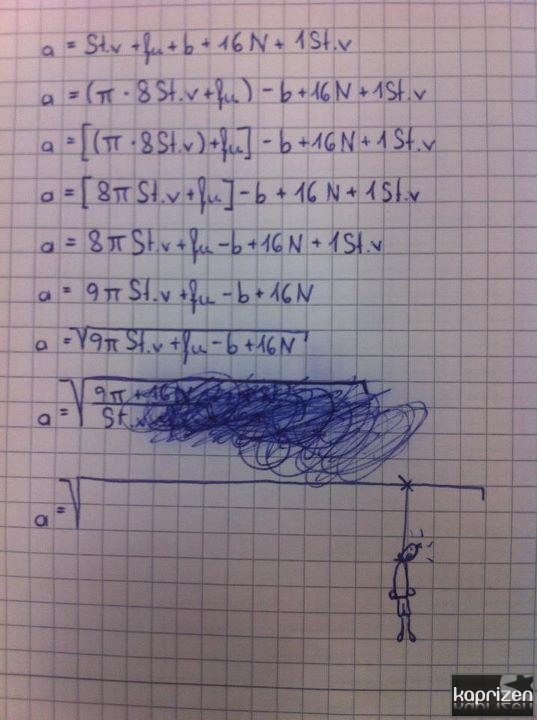 a = St.v + fu + b + 16N + 1St.v
a = (π · 8St.v + fu) - b + 16N + 1St.v
a = [(π · 8St.v) + fu] - b + 16N + 1St.v
a = [8π St.v + fu] - b + 16N + 1St.v
a = 8π St.v + fu - b + 16N + 1St.v
a = 9π St.v + fu - b + 16N
a = √9π St.v + fu - b + 16N
a = √9π + 16N
St.
a = √
kaprizen